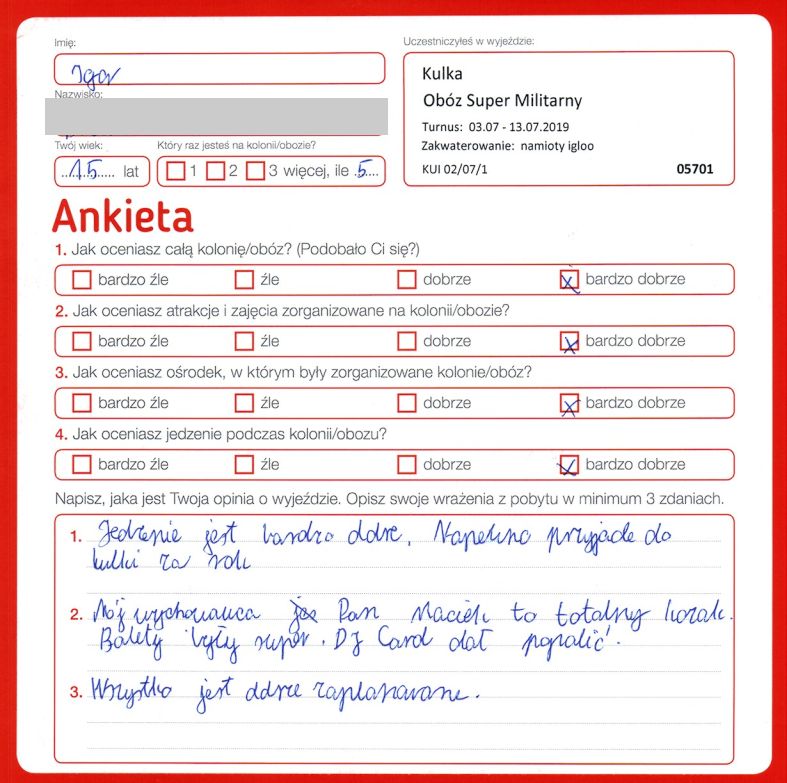 Imię:
Igor
Nazwisko:
Twój wiek:
15 lat
Który raz jesteś na kolonii/obozie?
1 2 3 więcej, ile 5
Uczestniczyłeś w wyjeździe:
Kulka
Obóz Super Militarny
Turnus: 03.07 - 13.07.2019
Zakwaterowanie: namioty igloo
KUI 02/07/1 05701
Ankieta
1. Jak oceniasz całą kolonię/obóz? (Podobało Ci się?)
bardzo źle źle dobrze bardzo dobrze
2. Jak oceniasz atrakcje i zajęcia zorganizowane na kolonii/obozie?
bardzo źle źle dobrze bardzo dobrze
3. Jak oceniasz ośrodek, w którym były zorganizowane kolonie/obóz?
bardzo źle źle dobrze bardzo dobrze
4. Jak oceniasz jedzenie podczas kolonii/obozu?
bardzo źle źle dobrze bardzo dobrze
Napisz, jaka jest Twoja opinia o wyjeździe. Opisz swoje wrażenia z pobytu w minimum 3 zdaniach.
1. Jedzenie jest bardzo dobre. Napewno przyjade do
kulki za rok
2. Mój wychowawca Pan Maciek to totalny kozak.
Balety były super. DJ Card dał popalić.
3. Wszystko jest dobrze zaplanowane.